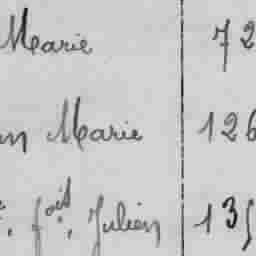 Marie 72
n Marie 126
, f.ois, Julien 135